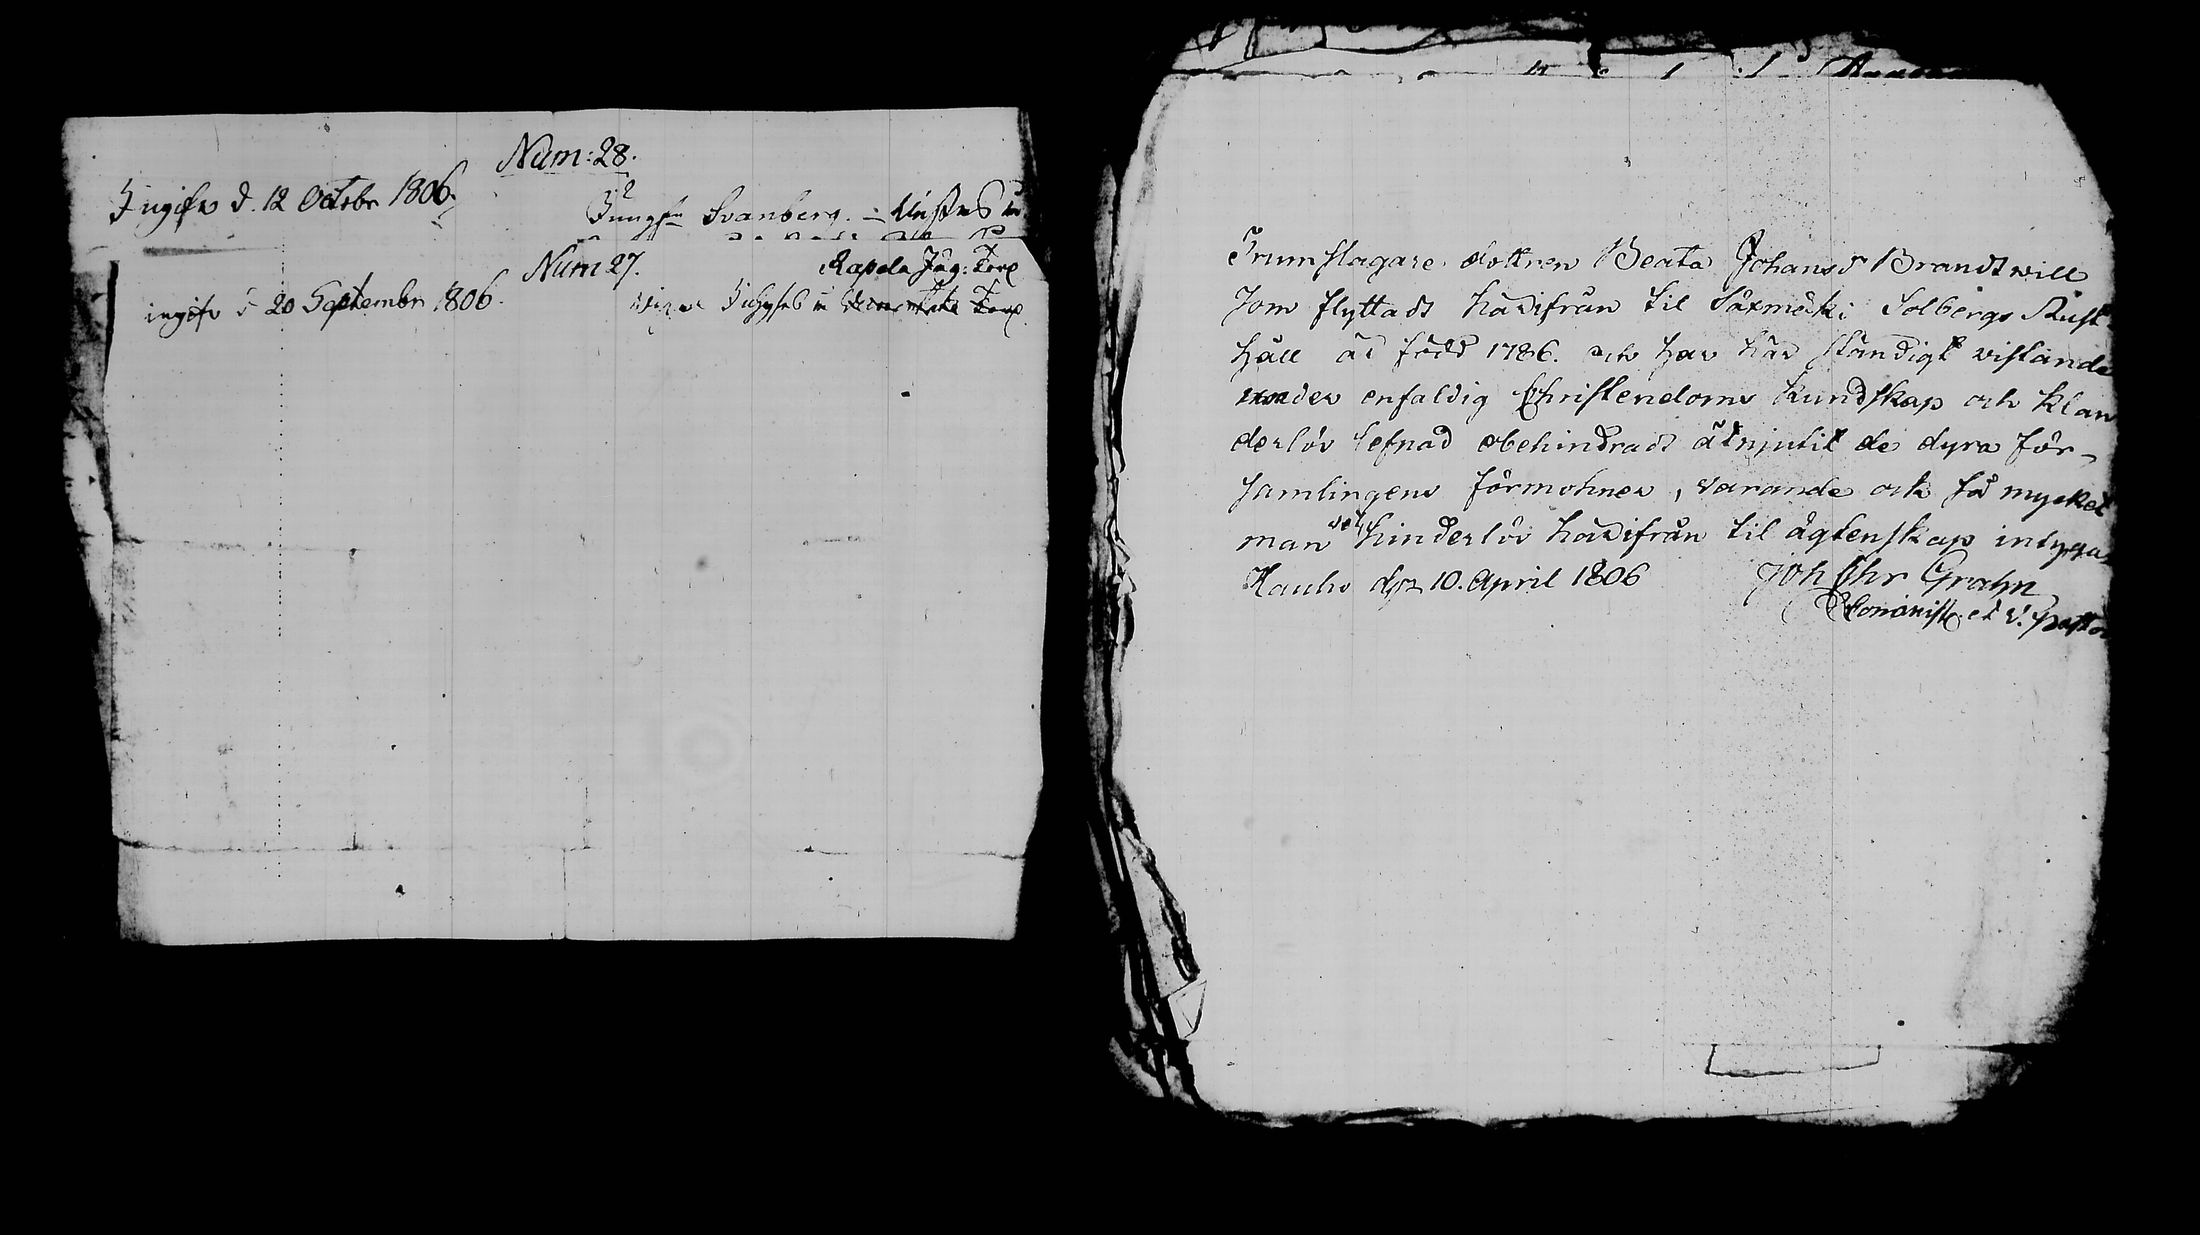 Num: 28.
Ingifw d. 12 Octobr 1806.
Jungfn Svanberg.
Num 27.
Rapola Jäg: Torp
ingifw d 20 Septembr 1806.
Torp
Trumslagare dottren Beata Johansdr Brandtwill
som flyttadt hädifrån til Säxmäki Solbergs Rust
håll är född 1786. och har här ständigt vistande
under enfaldig Christendoms Kundskap och klan
derlös lefnad obehindradt åtnjutit de dyra för-
samlingens förmohner, varande och så mycket
man vet hinderlös hädifrån til ägtenskap intygas
Hauho dgn 10. April 1806
Joh Chr Grahn
Comminist: et V. Pastor